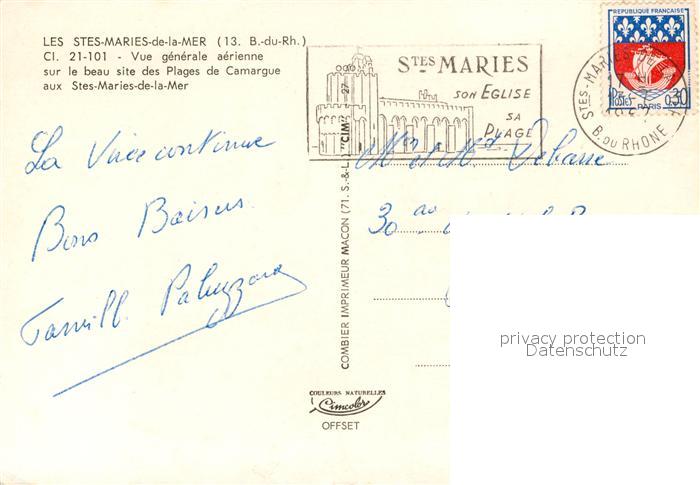 LES STES-MARIES-de-la-MER (13. B.-du-Rh.)
Cl. 21-101 - Vue générale aérienne
sur le beau site des Plages de Camargue
aux Stes-Maries-de-la-Mer
STES MARIES
SON EGLISE
SA
PLAGE
REPUBLIQUE FRANCAISE
POSTES
PARIS
0,30
STES-MARIES
B. DU RHONE
La Virée continue
Bons Baisers
Famill.
Mr et Md Debarre
30 av
COMBIER IMPRIMEUR MACON (71. S.-&-L.) "CIM" 27
privacy protection
Datenschutz
COULEURS NATURELLES
Cimcolor
OFFSET